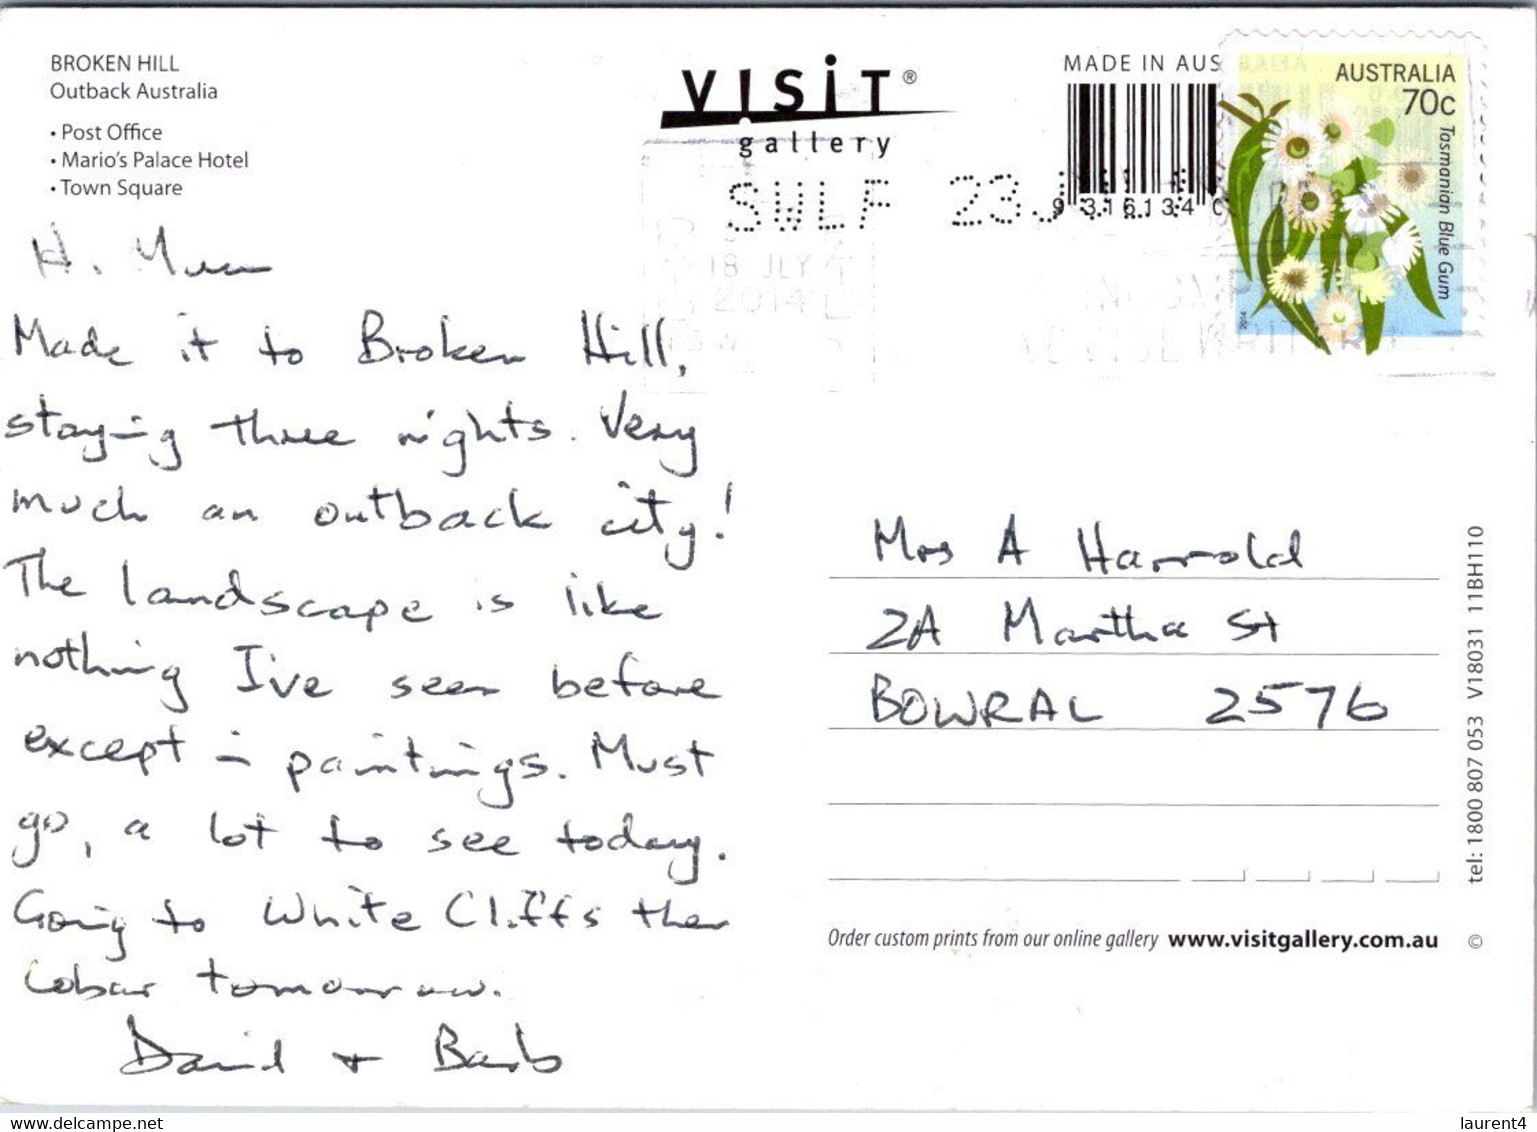 BROKEN HILL
Outback Australia
• Post Office
• Mario's Palace Hotel
• Town Square
VISIT®
gallery
MADE IN AUS
9 316134 0
AUSTRALIA
70c
Tasmanian Blue Gum
2014
SWLF 23
18 JLY
2014
Hi Mum
Made it to Broken Hill,
staying three nights. Very
much an outback city!
The landscape is like
nothing I've seen before
except in paintings. Must
go, a lot to see today.
Going to White Cliffs then
Cobar tomorrow.
David + Barb
Mrs A Harrold
2A Martha St
BOWRAL 2576
Order custom prints from our online gallery www.visitgallery.com.au ©
tel: 1800 807 053 V18031 11BH110
www.delcampe.net
laurent4